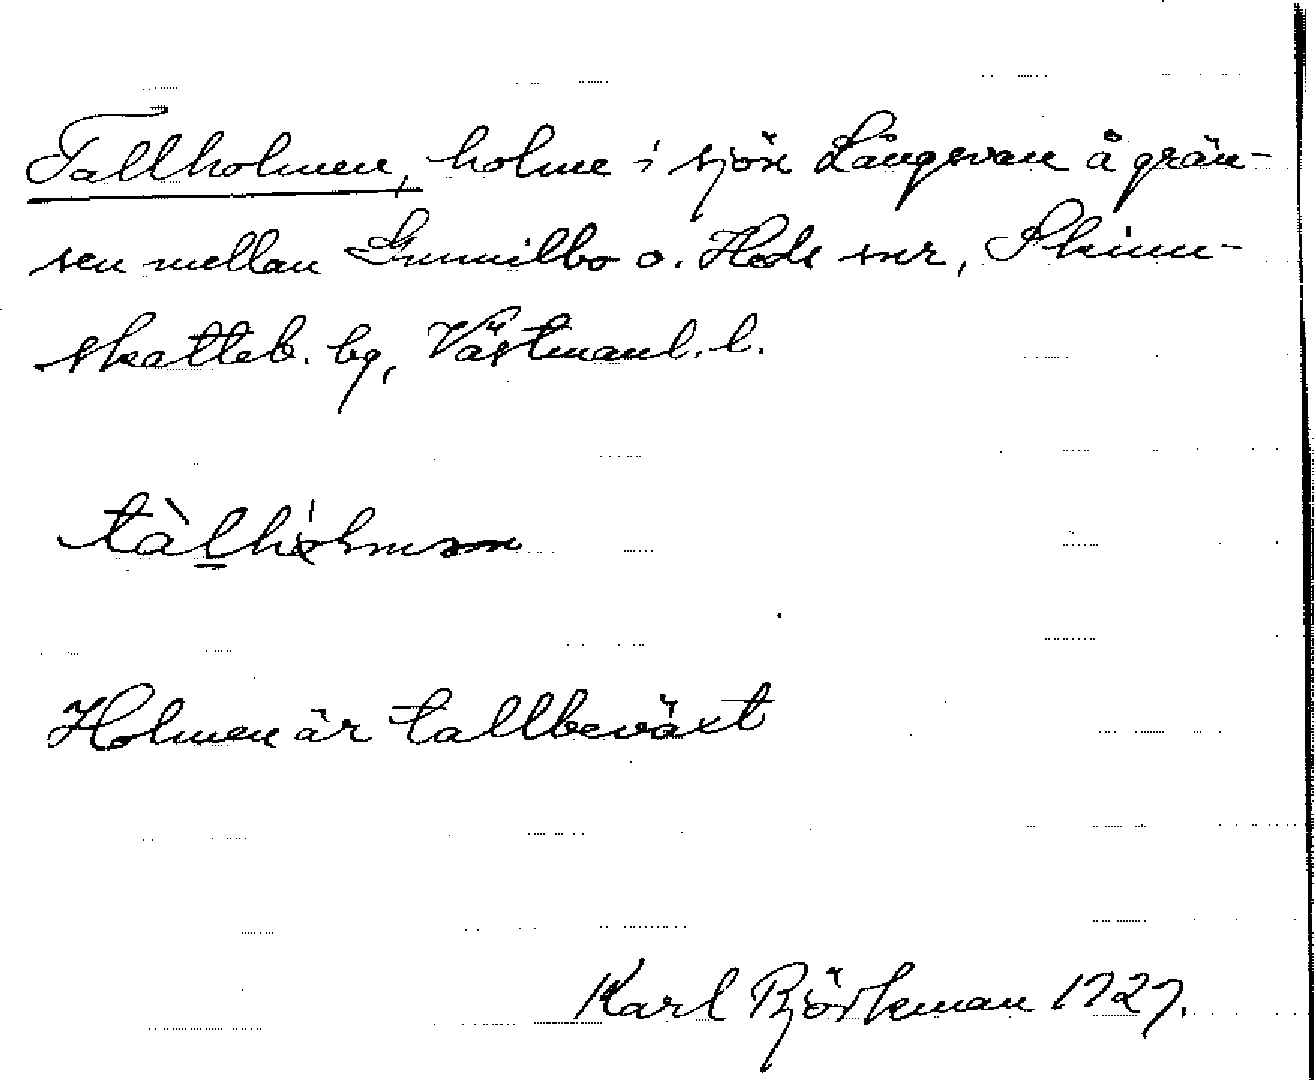 Tallholmen, holme i sjön Långsvan å grän-
sen mellan Gunnilbo o. Heds snr, Skinn-
skatteb. bg, Västmanl. l.
tàlhólmən
Holmen är tallbeväxt
Karl Björkman 1927.